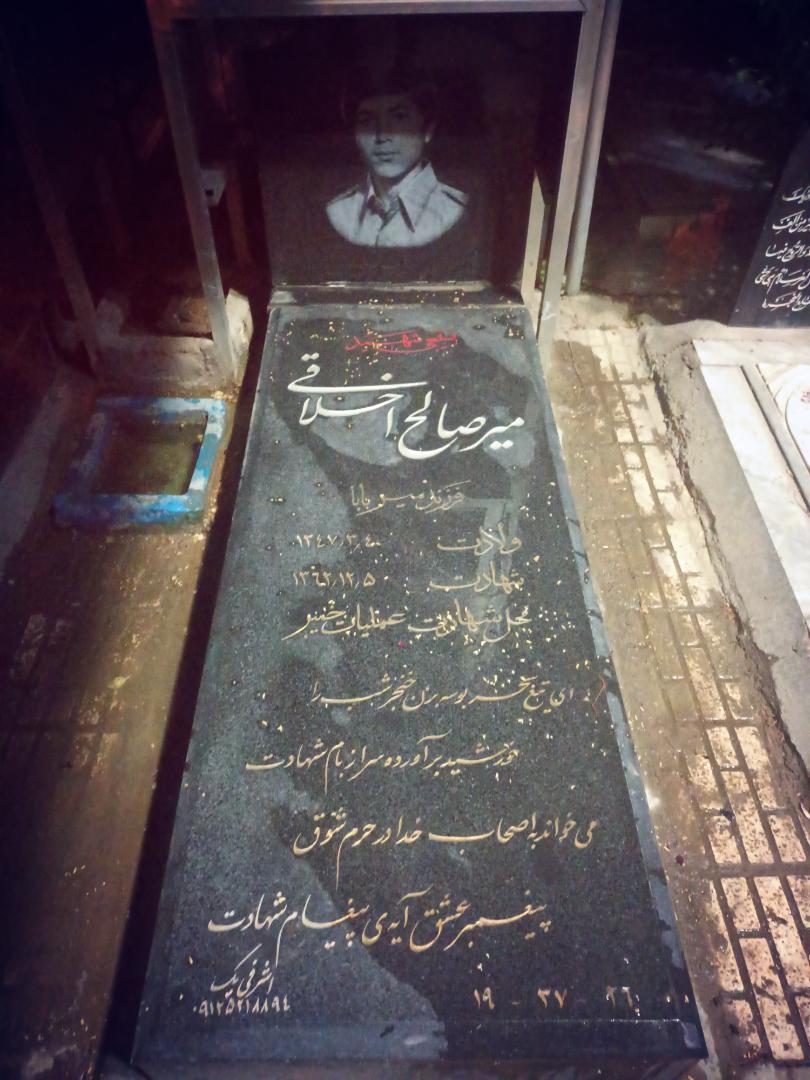 شهید
میر صالح اخلاقی
فرزند میر بابا
ولادت ۱۳۴۷/۳/۴
شهادت ۱۳۶۲/۱۲/۵
محل شهادت عملیات خیبر
ای تیغ سحر بوسه بزن خنجر شب را
خورشید برآورده سر از بام شهادت
می خواند به اصحاب خدا در حرم شوق
پیغمبر عشق آیه ی پیغام شهادت
اشرفی یک
۰۹۱۲۵۲۱۸۸۹۴
۱۹ - ۳۷ - ۲۶